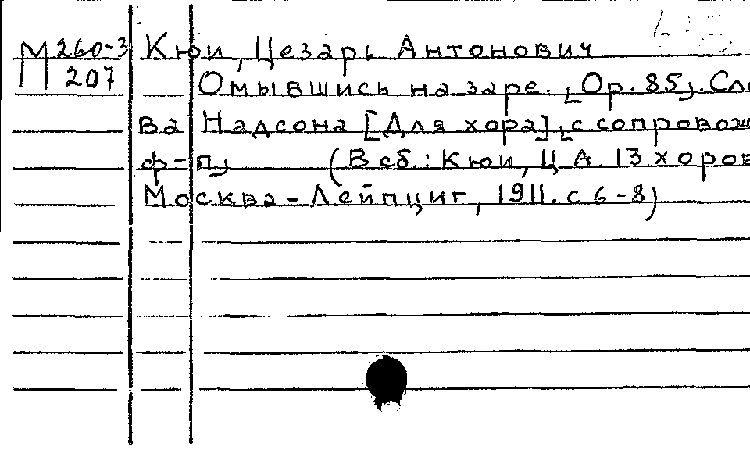 М 260-3 Кюи, Цезарь Антонович
207 Омывшись на заре. [Op. 85]. Сло
ва Надсона [Для хора], [с сопровож
ф-п] (В сб.: Кюи, Ц. А. 13 хоров
Москва - Лейпциг, 1911. с 6-8)